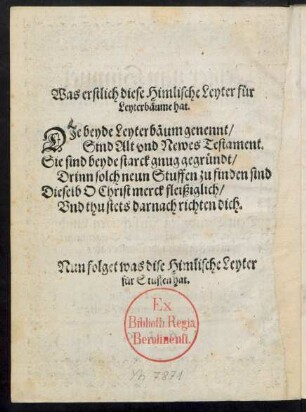 Was erstlich diese Himlische Leyter für
Leyterbäume hat.
Die beyde Leyterbäum genennt/
Sind Alt vnd Newes Testament.
Sie sind beyde starck gnug gegründt/
Drinn solch neun Stuffen zu finden sind
Dieselb O Christ merck fleißiglich/
Vnd thu stets darnach richten dich.
Nun folget was dise Himlische Leyter
für Stuffen hat.
Ex
Biblioth. Regia
Berolinensi.
Yh 7871